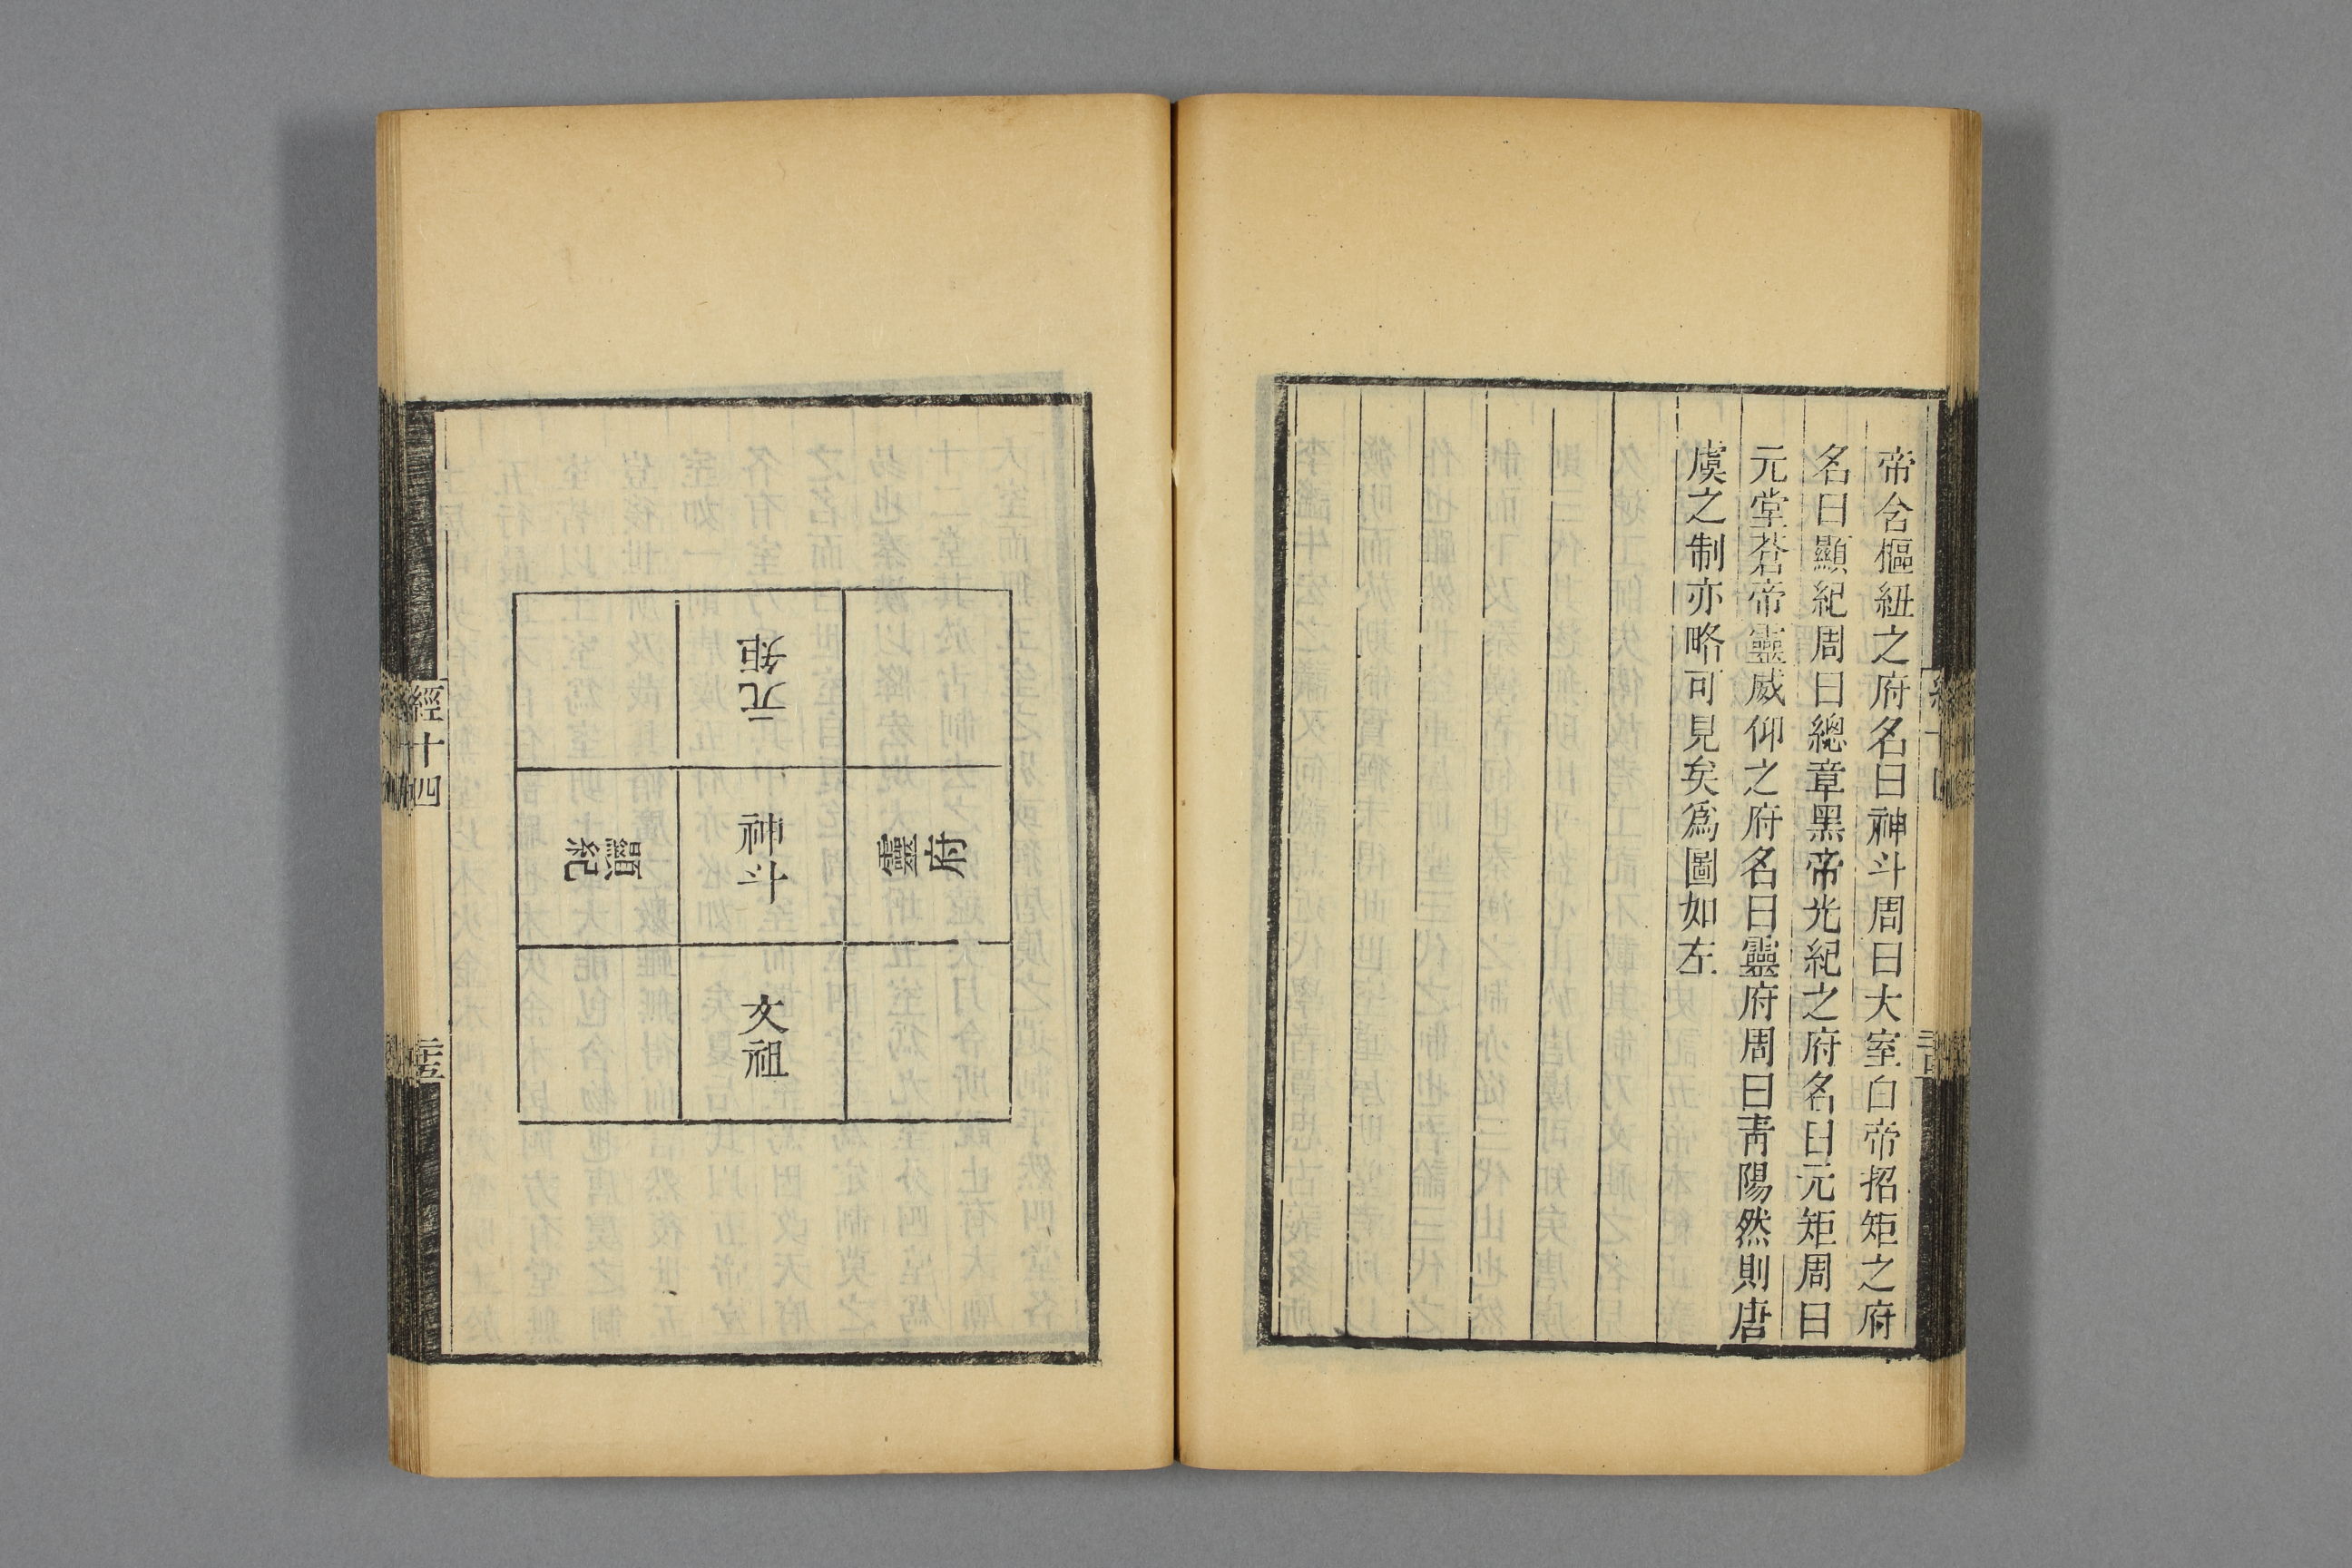 帝含樞紐之府名曰神斗周曰大室白帝招矩之府
名曰顯紀周曰總章黑帝光紀之府名曰元矩周曰
元堂蒼帝靈威仰之府名曰靈府周曰靑陽然則唐
虞之制亦略可見矣爲圖如左
元矩
靈府
神斗
顯紀
文祖
經十四
二十五